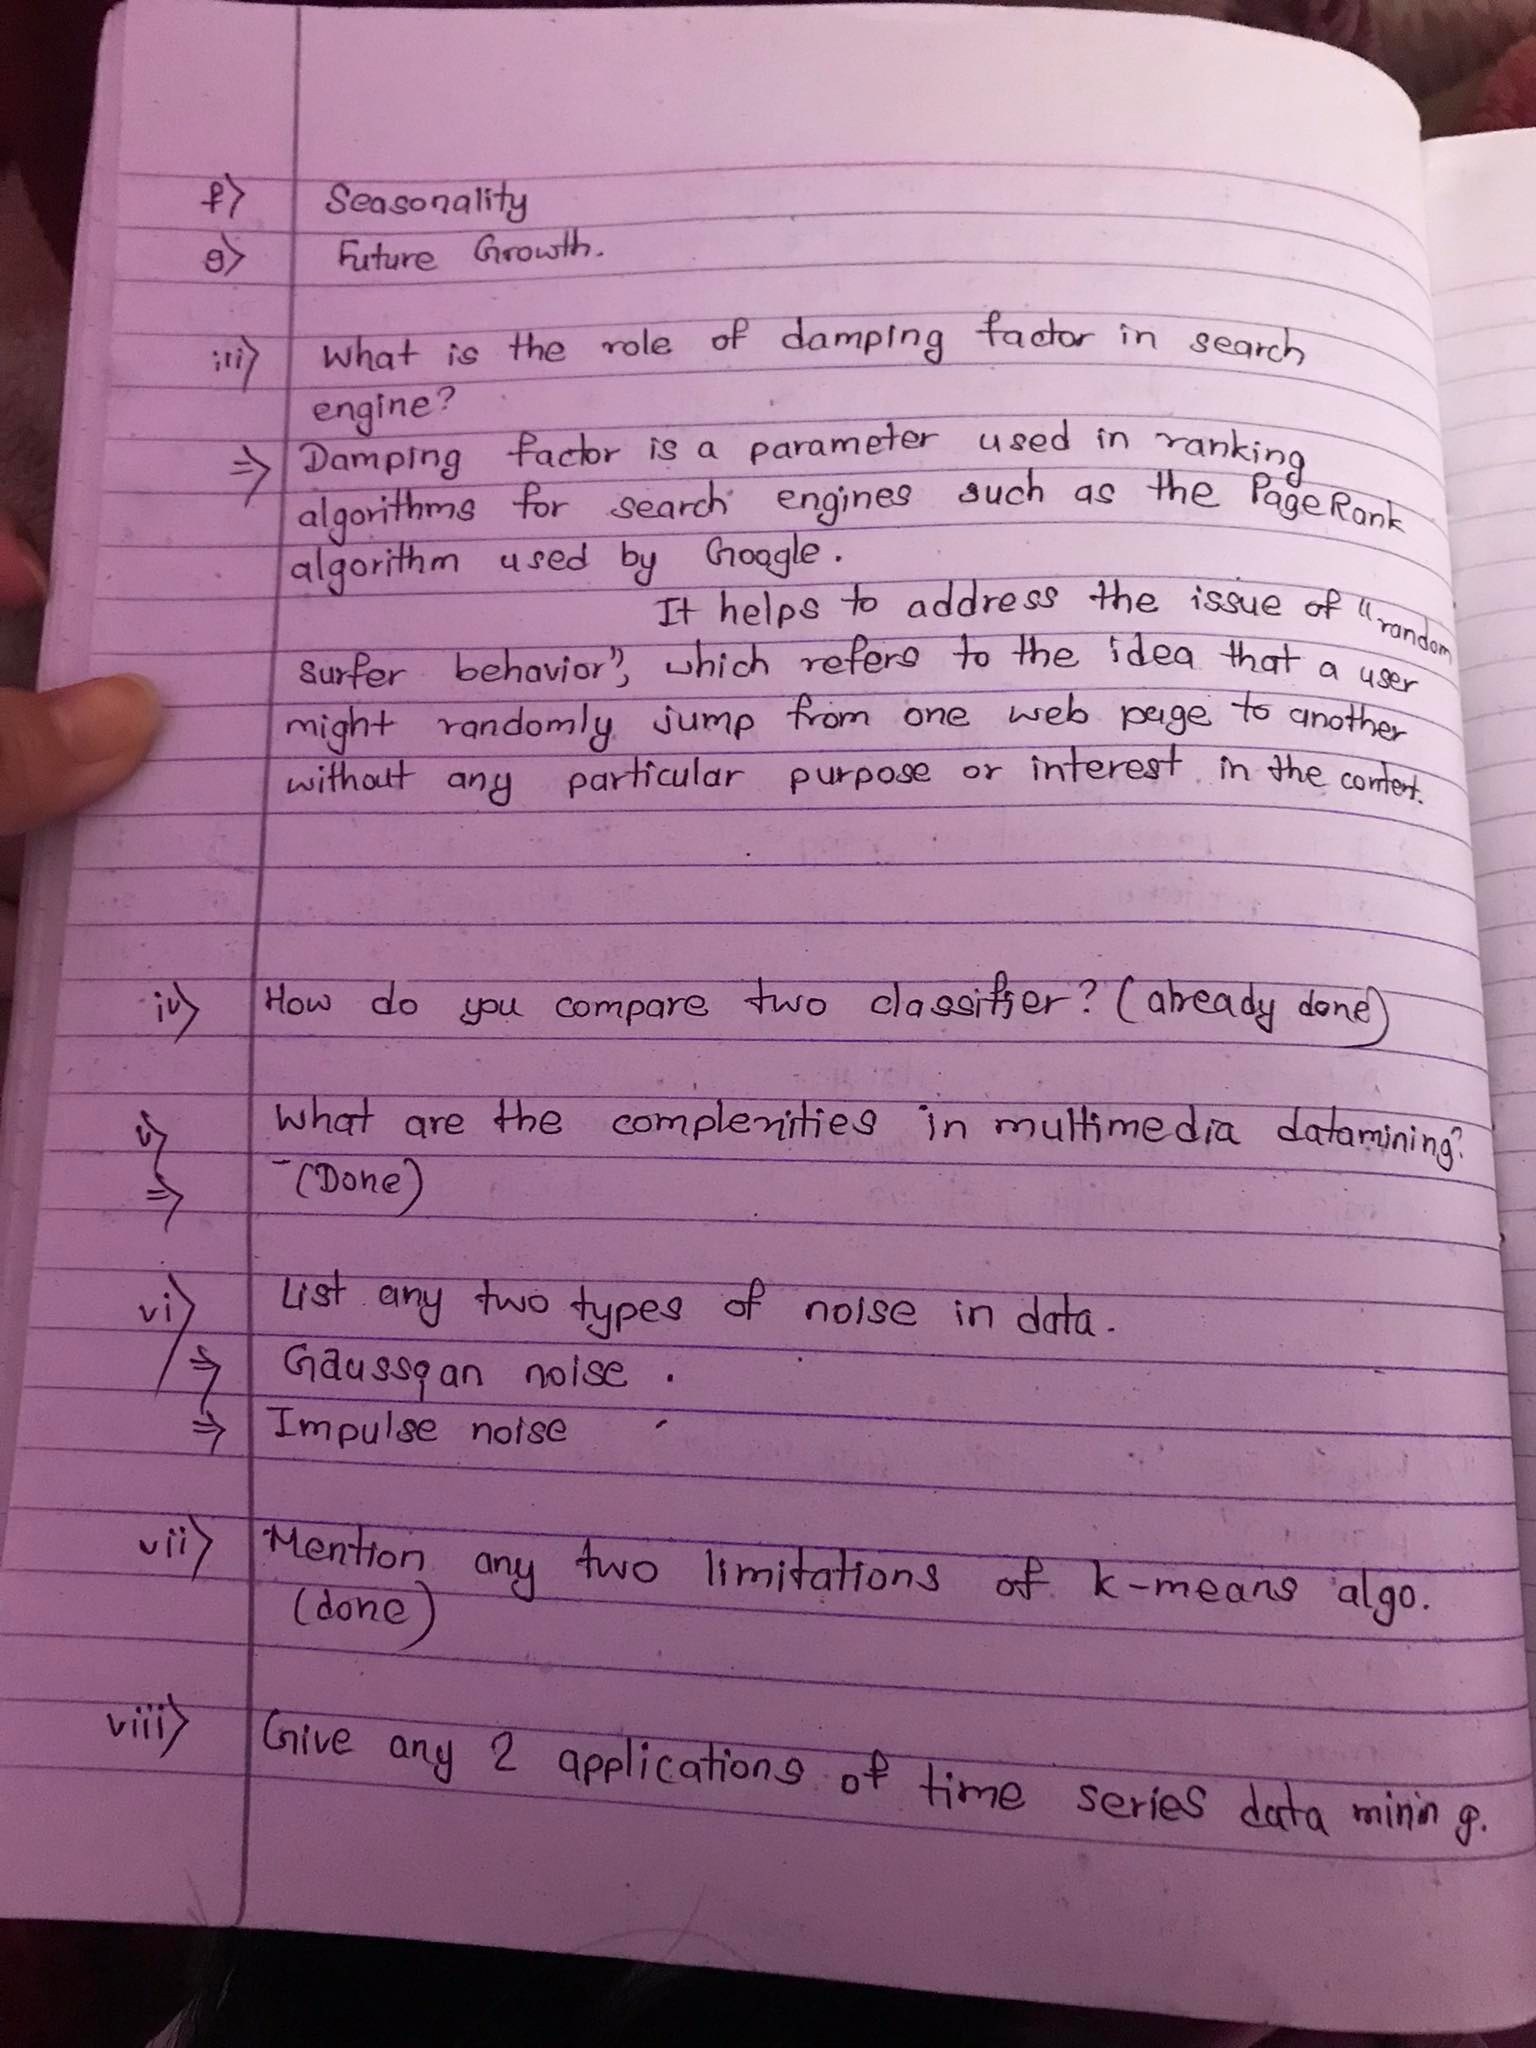 f> Seasonality
g> Future Growth.
iii> What is the role of damping factor in search
engine?
=> Damping factor is a parameter used in ranking
algorithms for search engines such as the PageRank
algorithm used by Google.
It helps to address the issue of "random
surfer behavior", which refers to the idea that a user
might randomly jump from one web page to another
without any particular purpose or interest in the content.
iv> How do you compare two classifier? (already done)
v> What are the complexities in multimedia datamining?
=> - (Done)
vi> List any two types of noise in data.
=> Gaussian noise.
=> Impulse noise
vii> Mention any two limitations of k-means algo.
(done)
viii> Give any 2 applications of time series data mining.